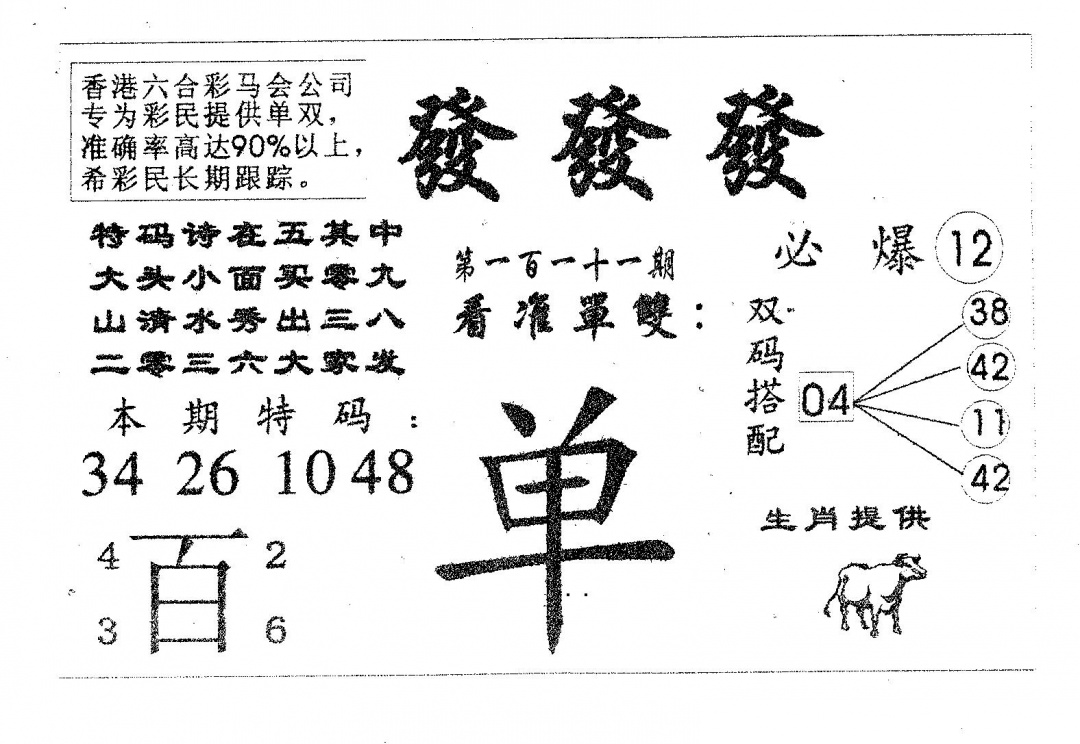 香港六合彩马会公司
专为彩民提供单双，
准确率高达90%以上，
希彩民长期跟踪。
發 發 發
特码诗在五其中
大头小面买零九
山清水秀出三八
二零三六大家发
第一百一十一期
看准單雙：
必 爆 12
双码搭配
04
38
42
11
42
本期特码：
34 26 10 48
单
4 百 2
3 6
生肖提供